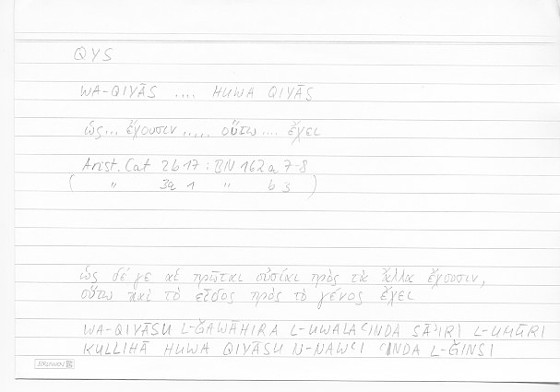 QYS
WA-QIYĀS .... HUWA QIYĀS
ὡς... ἔχουσιν ..... οὕτω .... ἔχει
Arist. Cat 2b17 : BN 162a 7-8
( " 3a 1 " b 3 )
ὡς δέ γε αἱ πρῶται οὐσίαι πρὸς τὰ ἄλλα ἔχουσιν,
οὕτω καὶ τὸ εἶδος πρὸς τὸ γένος ἔχει
WA-QIYĀSU L-ǦAWĀHIRA L-UWALA ʿINDA SĀʾIRI L-UMŪRI
KULLIHĀ HUWA QIYĀSU N-NAWʿI ʿINDA L-ǦINSI